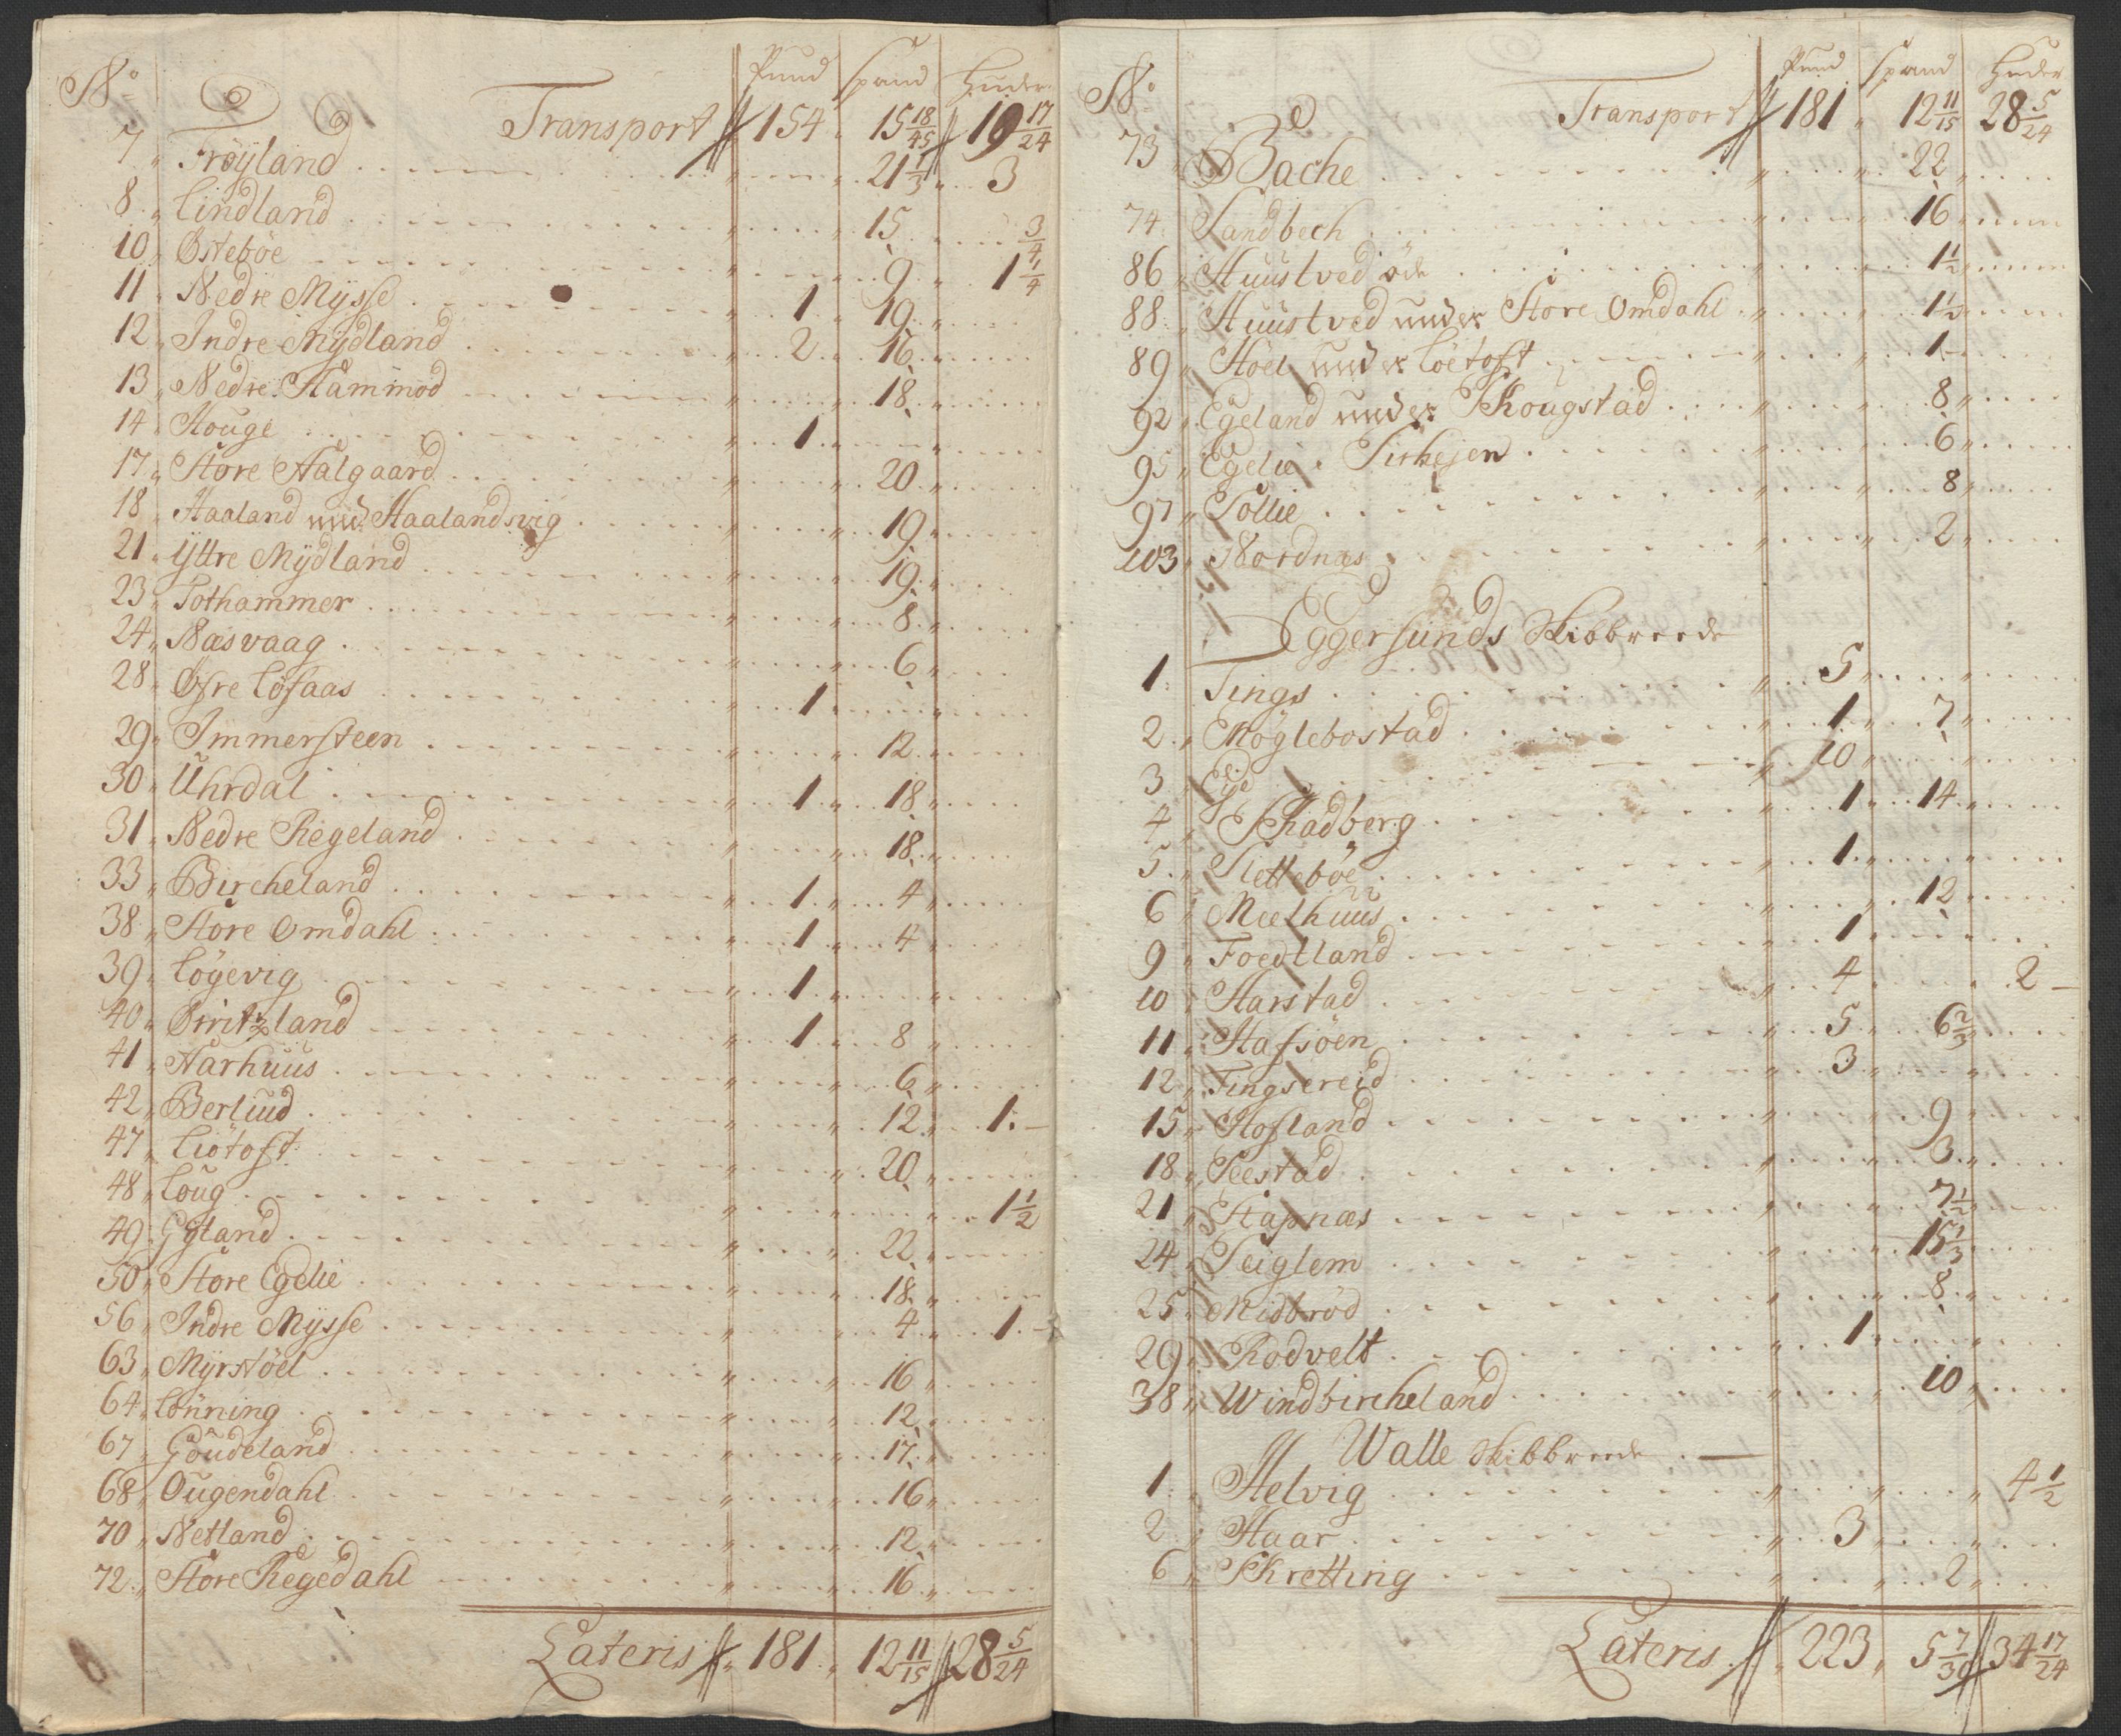 No Pund Spand Huder
Transport 154 15 18/45 19 17/24
7 Frøÿland 21 1/3 3
8 Lindland 15 3/4
10 Østebøe 9 1 1/4
11 Nedre Mÿsse 1 19
12 Indre Mÿdland 2 16
13 Nedre Hammod 18
14 Houge 1
17 Store Aalgaard 20
18 Haaland und Haalandsvig 19
21 Ÿttre Mÿdland 19
23 Tothammer 8
24 Næsvaag 6
28 Øfre Løfaas 1
29 Immersteen 12
30 Uhrdal 1 18
31 Nedre Regeland 18
33 Bircheland 1 4
38 Store Omdahl 1 4
39 Løgevig 1
40 Ørritzland 1 8
41 Aarhuus 6
42 Berliud 12 1
47 Liötoft 20
48 Loug 1 1/2
49 Gÿland 22
50 Store Egelie 18
56 Indre Mÿsse 4 1
63 Mÿrstöel 16
64 Lönning 12
67 Göudeland 17
68 Ougendahl 16
70 Netland 12
72 Store Regedahl 16
Lateris 181 12 11/15 28 5/24
No Pund Spand Huder
Transport 181 12 11/15 28 5/24
73 Bache 22
74 Sandbech 16
86 Huustved öde 1 1/2
88 Huustved under Store Omdahl 1 1/2
89 Höel under Löetoft 1
92 Egeland under Skougstad 8
95 Egelie Sirhejen 6
97 Sollie 8
103 Nordnæs 2
Eggersunds Skibbreede
1 Tings 5
2 Møglebostad 1 7
3 Eÿe 10
4 Skadberg 1 14
5 Slettebøe 1
6 Meelhuus 12
9 Foedlland 1
10 Harstad 4 2
11 Hafsøen 5 6 2/3
12 Tingsereid 3
15 Hofland 9
18 Seestad 3
21 Stapnæs 7 1/2
24 Seiglem 15 1/3
25 Midbröd 8
29 Rodvelt 1
38 Windbircheland 10
Walle Skibbreede
1 Helvig 4 1/2
2 Haar 3
6 Skretting 2
Lateris 223 5 7/30 34 17/24